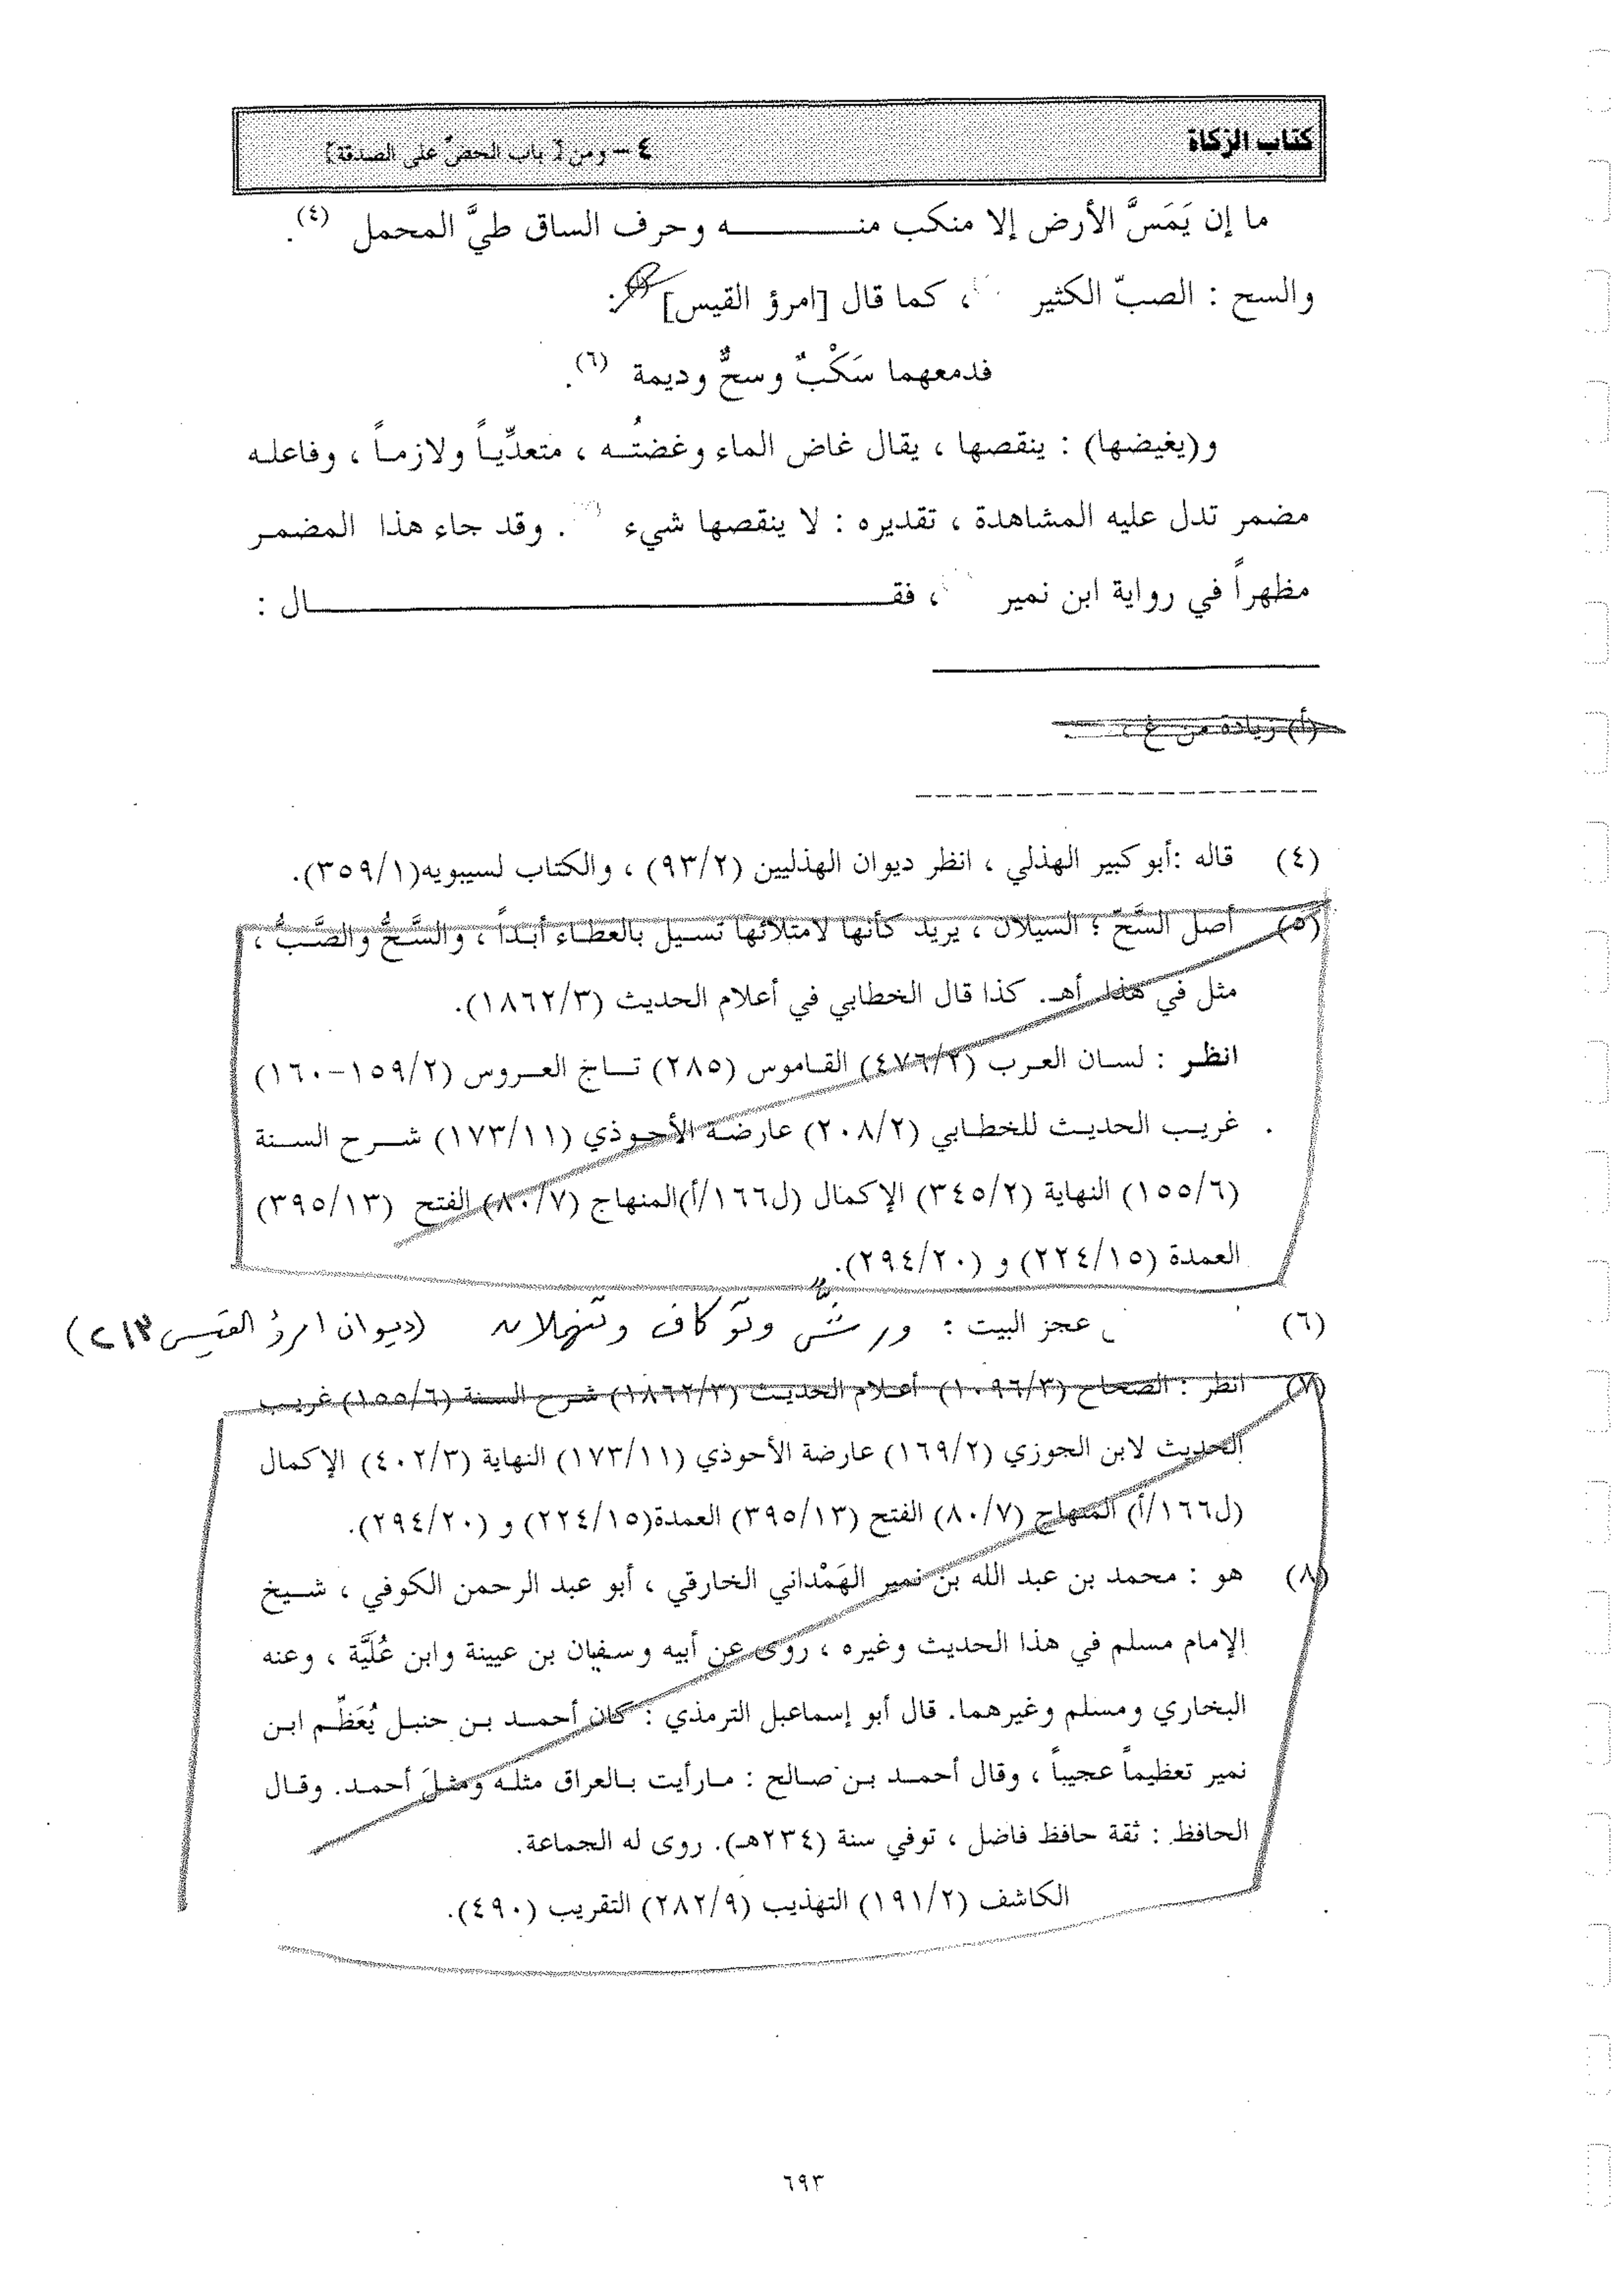 كتاب الزكاة
٤ – ومن [ باب الحض على الصدقة]
ما إن يَمَسَّ الأرض إلا منكب منـــــــه وحرف الساق طيَّ المحمل (٤).
والسح : الصبّ الكثير ، كما قال [امرؤ القيس] :
فدمعهما سَكْبٌ وسحٌّ وديمة (٦).
و(يغيضها) : ينقصها ، يقال غاض الماء وغضتُـه ، متعدِّيـاً ولازمـاً ، وفاعلـه
مضمر تدل عليه المشاهدة ، تقديره : لا ينقصها شيء . وقد جاء هذا المضمـر
مظهراً في رواية ابن نمير ، فقــــــــــال :
(أ) زيادة من غ
(٤) قاله :أبو كبير الهذلي ، انظر ديوان الهذليين (٩٣/٢) ، والكتاب لسيبويه(٣٥٩/١).
(٥) أصل السَّحّ ؛ السيلان ، يريد كأنها لامتلائها تسـيل بالعطـاء أبـداً ، والسَّـحُّ والصَّـبُّ ،
مثل في هذا. أهـ. كذا قال الخطابي في أعلام الحديث (١٨٦٢/٣).
انظـر : لسـان العـرب (٤٧٦/٢) القـاموس (٢٨٥) تـاج العـروس (١٥٩/٢-١٦٠)
غريـب الحديـث للخطـابي (٢٠٨/٢) عارضـة الأحـوذي (١٧٣/١١) شـرح السـنة
(١٥٥/٦) النهاية (٣٤٥/٢) الإكمال (ل١٦٦/أ)المنهاج (٨٠/٧) الفتح (٣٩٥/١٣)
العمدة (٢٢٤/١٥) و (٢٩٤/٢٠).
(٦) عجز البيت : ورشٌّ وتَوكاف وتنهملان (ديوان امرؤ القيس ٢١٣)
(٧) انظر : الصحاح (١٠٩٦/٣) أعـلام الحديـث (١٨٦٢/٣) شـرح السنة (١٥٥/٦) غريـب
الحديث لابن الجوزي (١٦٩/٢) عارضة الأحوذي (١٧٣/١١) النهاية (٤٠٢/٣) الإكمال
(ل١٦٦/أ) المنهاج (٨٠/٧) الفتح (٣٩٥/١٣) العمدة(٢٢٤/١٥) و (٢٩٤/٢٠).
(٨) هو : محمد بن عبد الله بن نمير الهَمْداني الخارقي ، أبو عبد الرحمن الكوفي ، شـيخ
الإمام مسلم في هذا الحديث وغيره ، روى عن أبيه وسفيان بن عيينة وابن عُلَيَّة ، وعنه
البخاري ومسلم وغيرهما. قال أبو إسماعيل الترمذي : كان أحمـد بـن حنبـل يُعَظِّـم ابـن
نمير تعظيماً عجيباً ، وقال أحمـد بـن صـالح : مـارأيت بـالعراق مثلـه ومثـلَ أحمـد. وقـال
الحافظ : ثقة حافظ فاضل ، توفي سنة (٢٣٤هـ). روى له الجماعة.
الكاشف (١٩١/٢) التهذيب (٢٨٢/٩) التقريب (٤٩٠).
٦٩٣